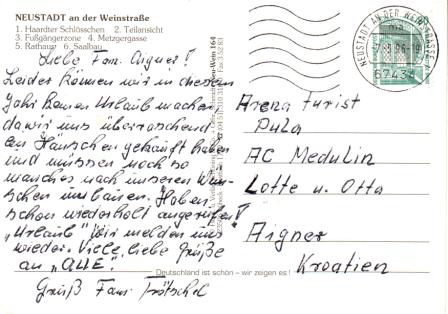 NEUSTADT an der Weinstraße
1. Haardter Schlösschen 2. Teilansicht
3. Fußgängerzone 4. Metzgergasse
5. Rathaus 6. Saalbau
Liebe Fam. Aigner!
Leider können wir in diesem
Jahr keinen Urlaub machen,
da wir uns überraschend
ein Häuschen gekauft haben
und müssen noch so
manches nach unseren Wün-
schen umbauen. Haben
schon wiederholt angerufen!
"Urlaub" Wir melden uns
wieder. Viele, liebe Grüße
an "ALLE".
Gruß Fam. Frötschel
NEUSTADT AN DER WEINSTRASSE
96-19
6743
Arena Turist
Pula
AC Medulin
Lotte u. Otto
Aigner
Kroatien
Deutschland ist schön – wir zeigen es!